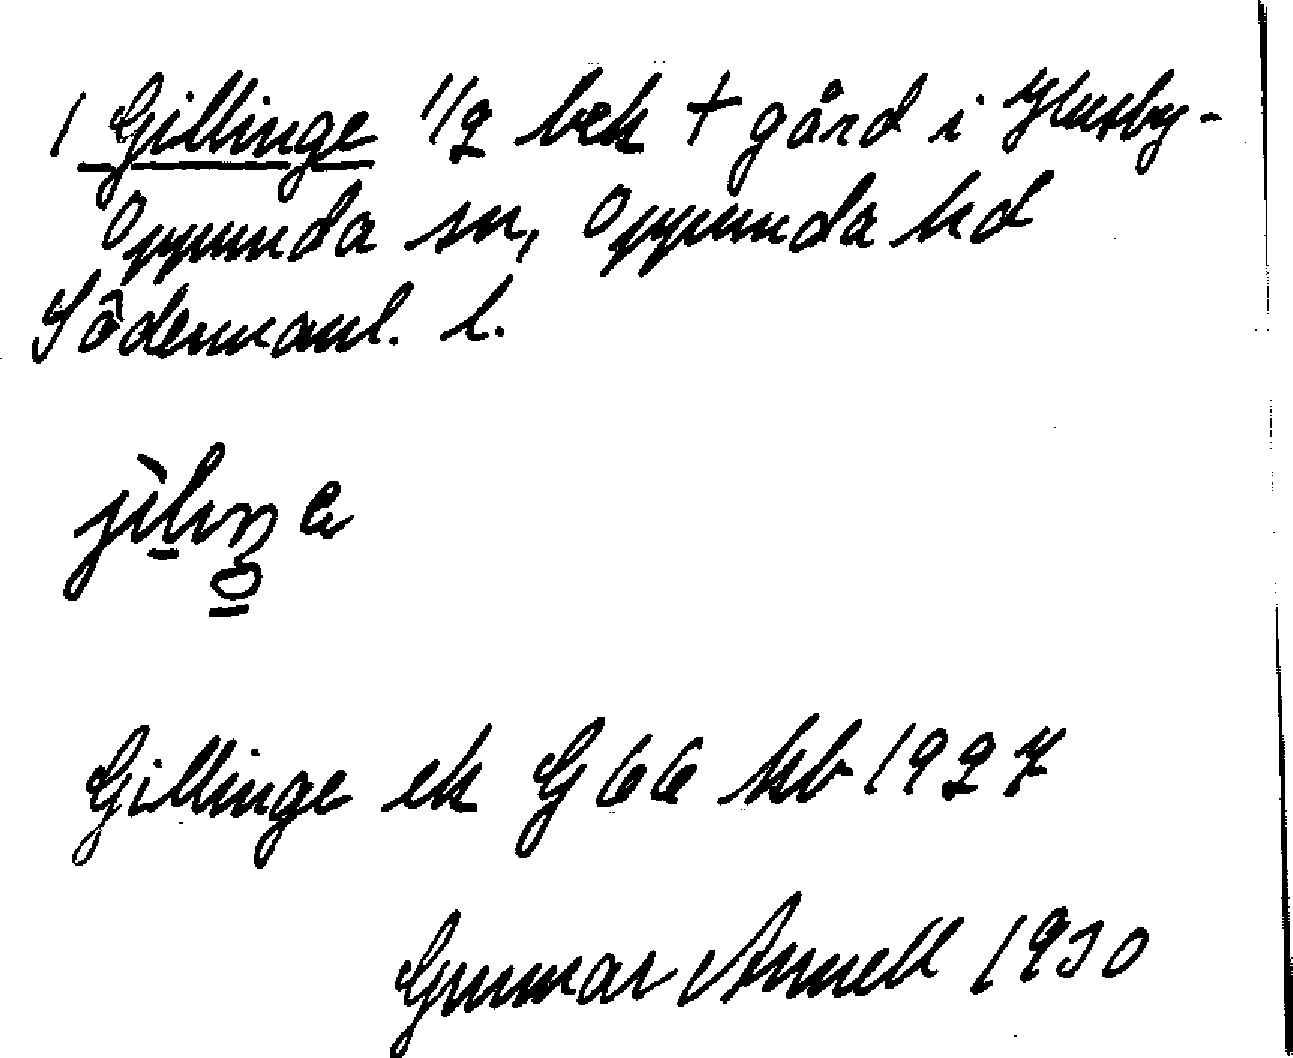 1 Gillinge 1/2 bek + gård i Husby-
Oppunda sn, Oppunda hd
Södermanl. l.
Gillinge ek G 66 kb 1927
Gunnar Annell 1930